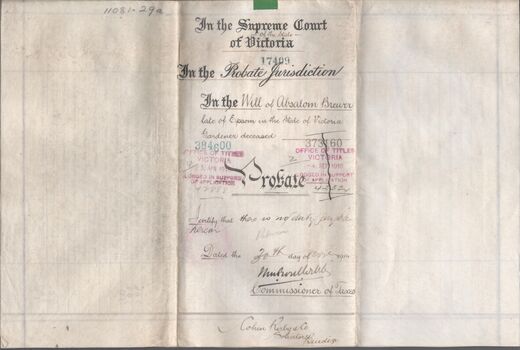 11081-29a
In the Supreme Court
of the State
of Victoria
17409
In the Probate Jurisdiction
In the Will of Absalom Brewer
late of Epsom in the State of Victoria
Gardener deceased
394600
373160
OFFICE OF TITLES
VICTORIA
LODGED IN SUPPORT
OF APPLICATION
OFFICE OF TITLES
VICTORIA
LODGED IN SUPPORT
OF APPLICATION
Probate
I certify that there is no duty payable
hereon
Dated the 20th day of
Commissioner of Taxes
Cohen Kirby & Co